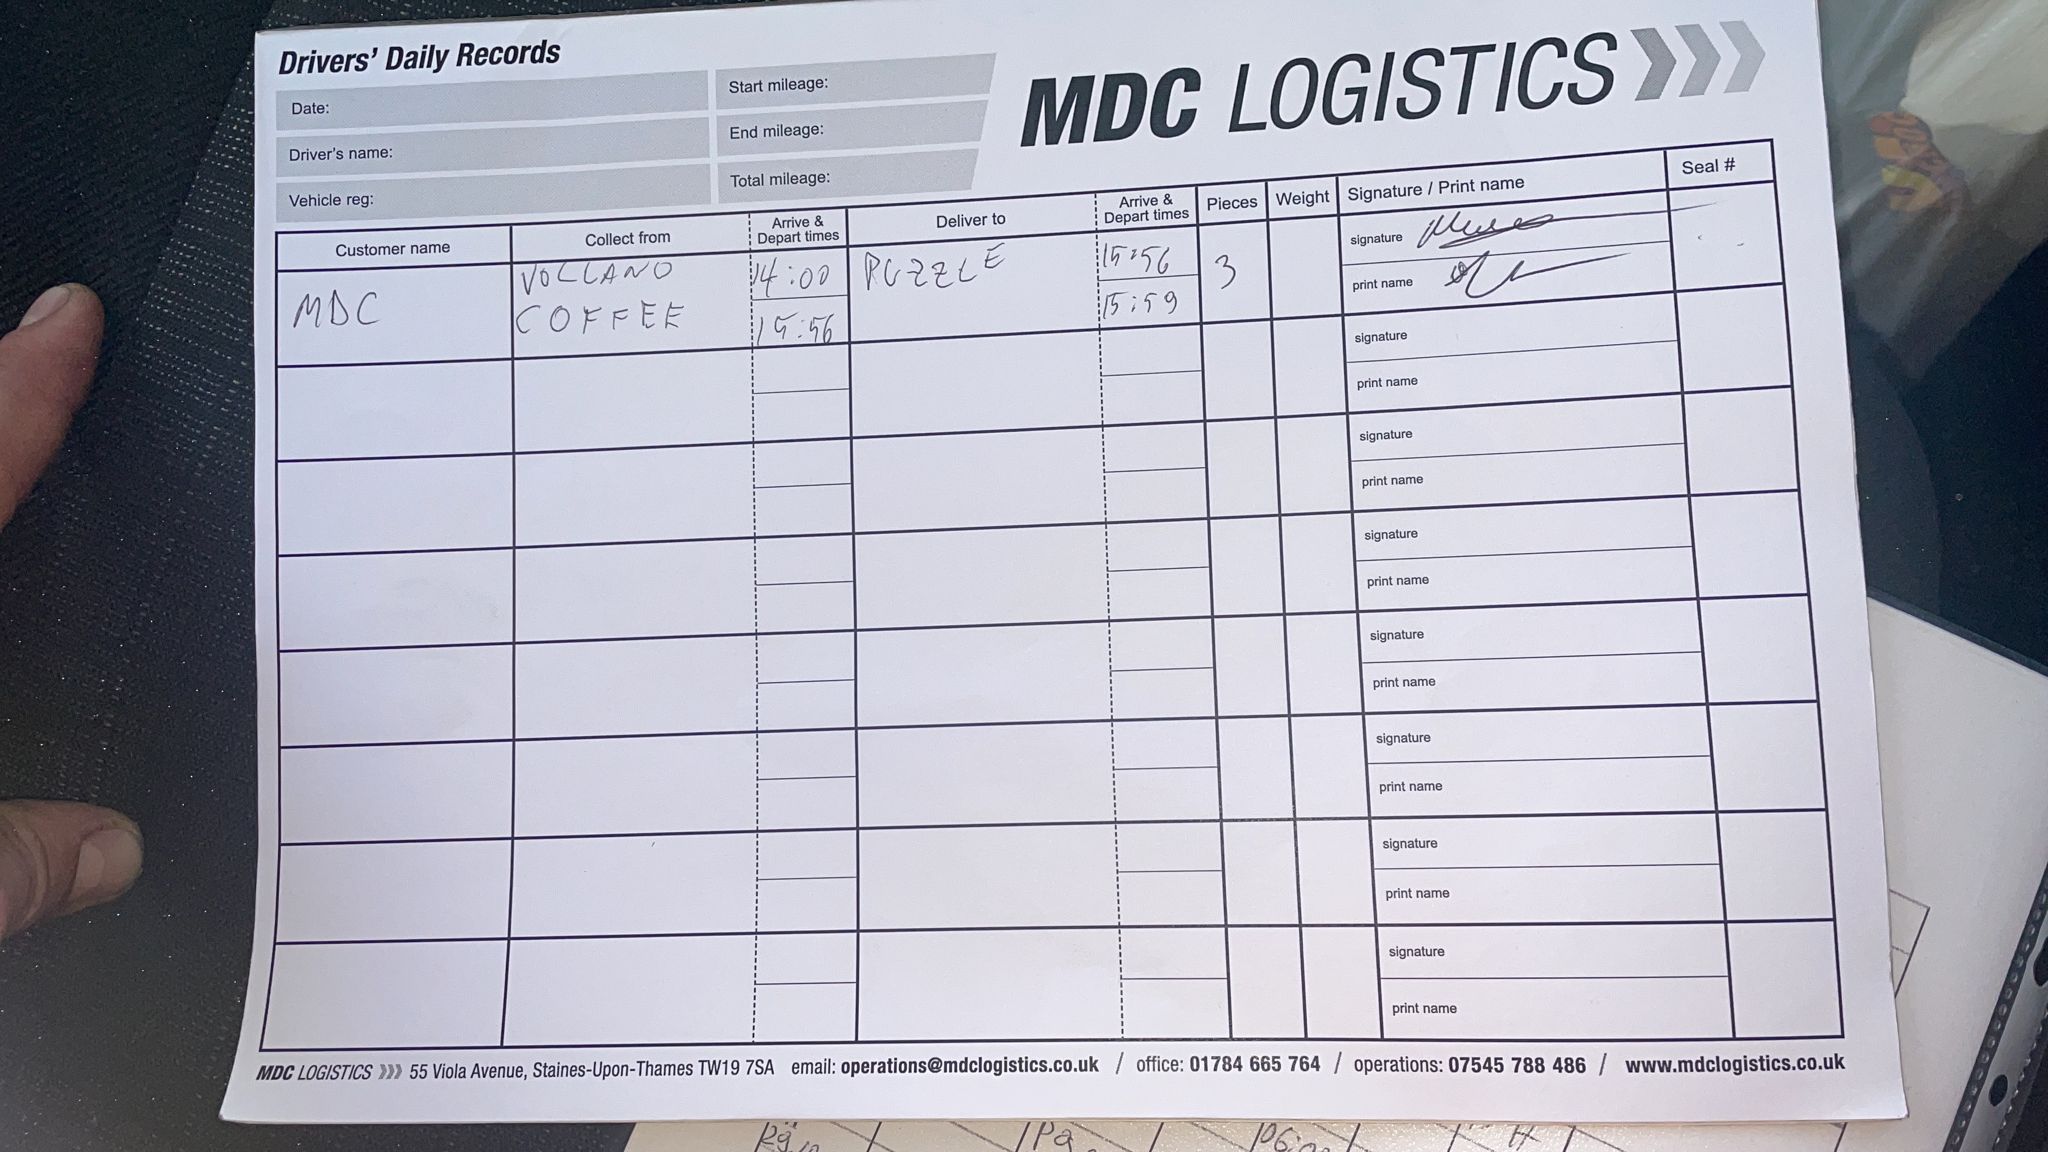 Drivers' Daily Records
MDC LOGISTICS
Date:
Driver's name:
Vehicle reg:
Start mileage:
End mileage:
Total mileage:
Customer name
Collect from
Arrive &
Depart times
Deliver to
Arrive &
Depart times
Pieces
Weight
Signature / Print name
Seal #
MDC
VOLCANO
COFFEE
14:00
15:56
PUZZLE
15:56
15:59
3
signature
print name
signature
print name
signature
print name
signature
print name
signature
print name
signature
print name
signature
print name
signature
print name
MDC LOGISTICS 55 Viola Avenue, Staines-Upon-Thames TW19 7SA email: operations@mdclogistics.co.uk / office: 01784 665 764 / operations: 07545 788 486 / www.mdclogistics.co.uk